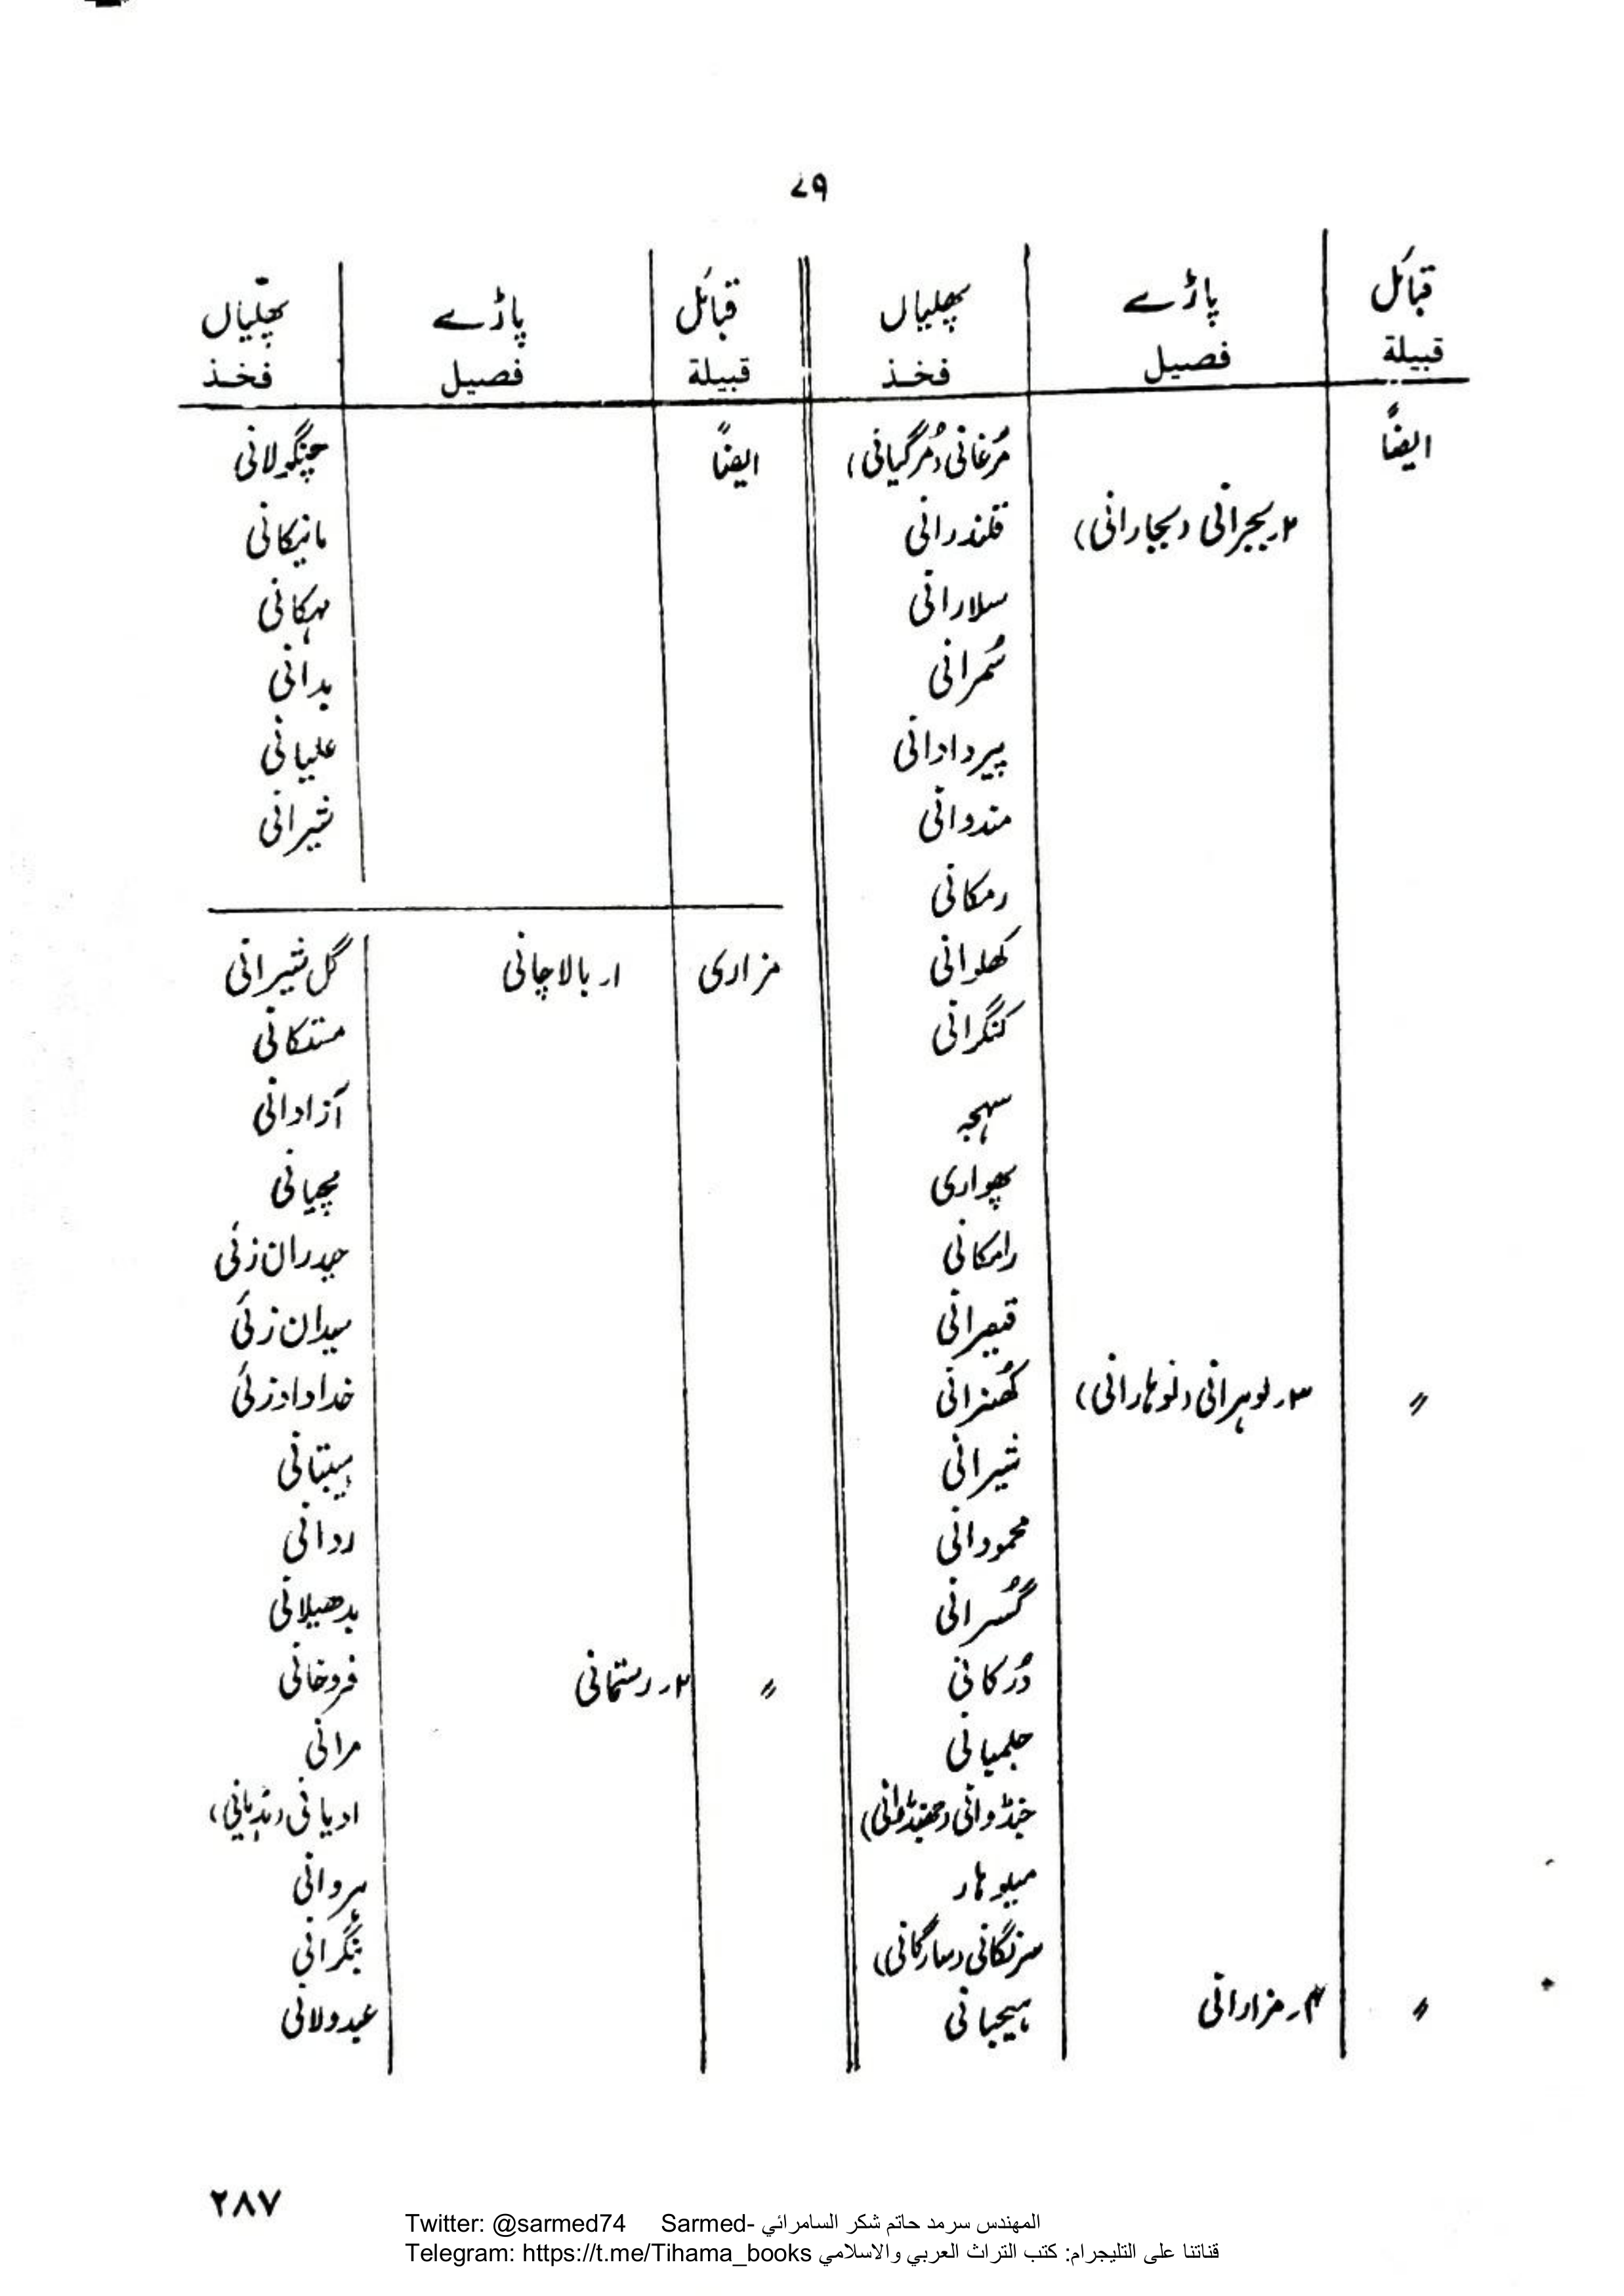 ۷۹
قبائل پاڑے پھلیاں
قبیلة فصیل فخذ
ایضاً مُرغانی (مُرگیانی)
۲ر بجرانی (بجارانی) قلندرانی
سلارانی
سُمرانی
پیردادانی
مندوانی
رمکانی
کھلوانی
کنگرانی
سہجہ
پھواری
رامکانی
قیصرانی
〃 ۳ر لوہرانی (لوہارانی) کھنرانی
شیرانی
محمودانی
گُسرانی
دُرکانی
جلمبانی
جنڈوانی (جھنڈوانی)
میلوہار
سرنگانی (سارگانی)
〃 ۴ر مزارانی ہیجبانی
قبائل پاڑے پھلیاں
قبیلة فصیل فخذ
ایضاً چنگولانی
مانیکانی
مہکانی
بدانی
علیانی
شیرانی
مزاری ۱ر بالاچانی گل شیرانی
مستکانی
آزادانی
مچیانی
حیدران زئی
سیدان زئی
خدادادزئی
ہیبتانی
ردانی
بدھیلانی
〃 ۲ر رستمانی فروخانی
مرانی
ادیانی
ہروانی
بنگرانی
عبدولانی
۲۸۷
Twitter: @sarmed74 Sarmed- المهندس سرمد حاتم شكر السامرائي
Telegram: https://t.me/Tihama_books قناتنا على التليجرام: كتب التراث العربي والاسلامي